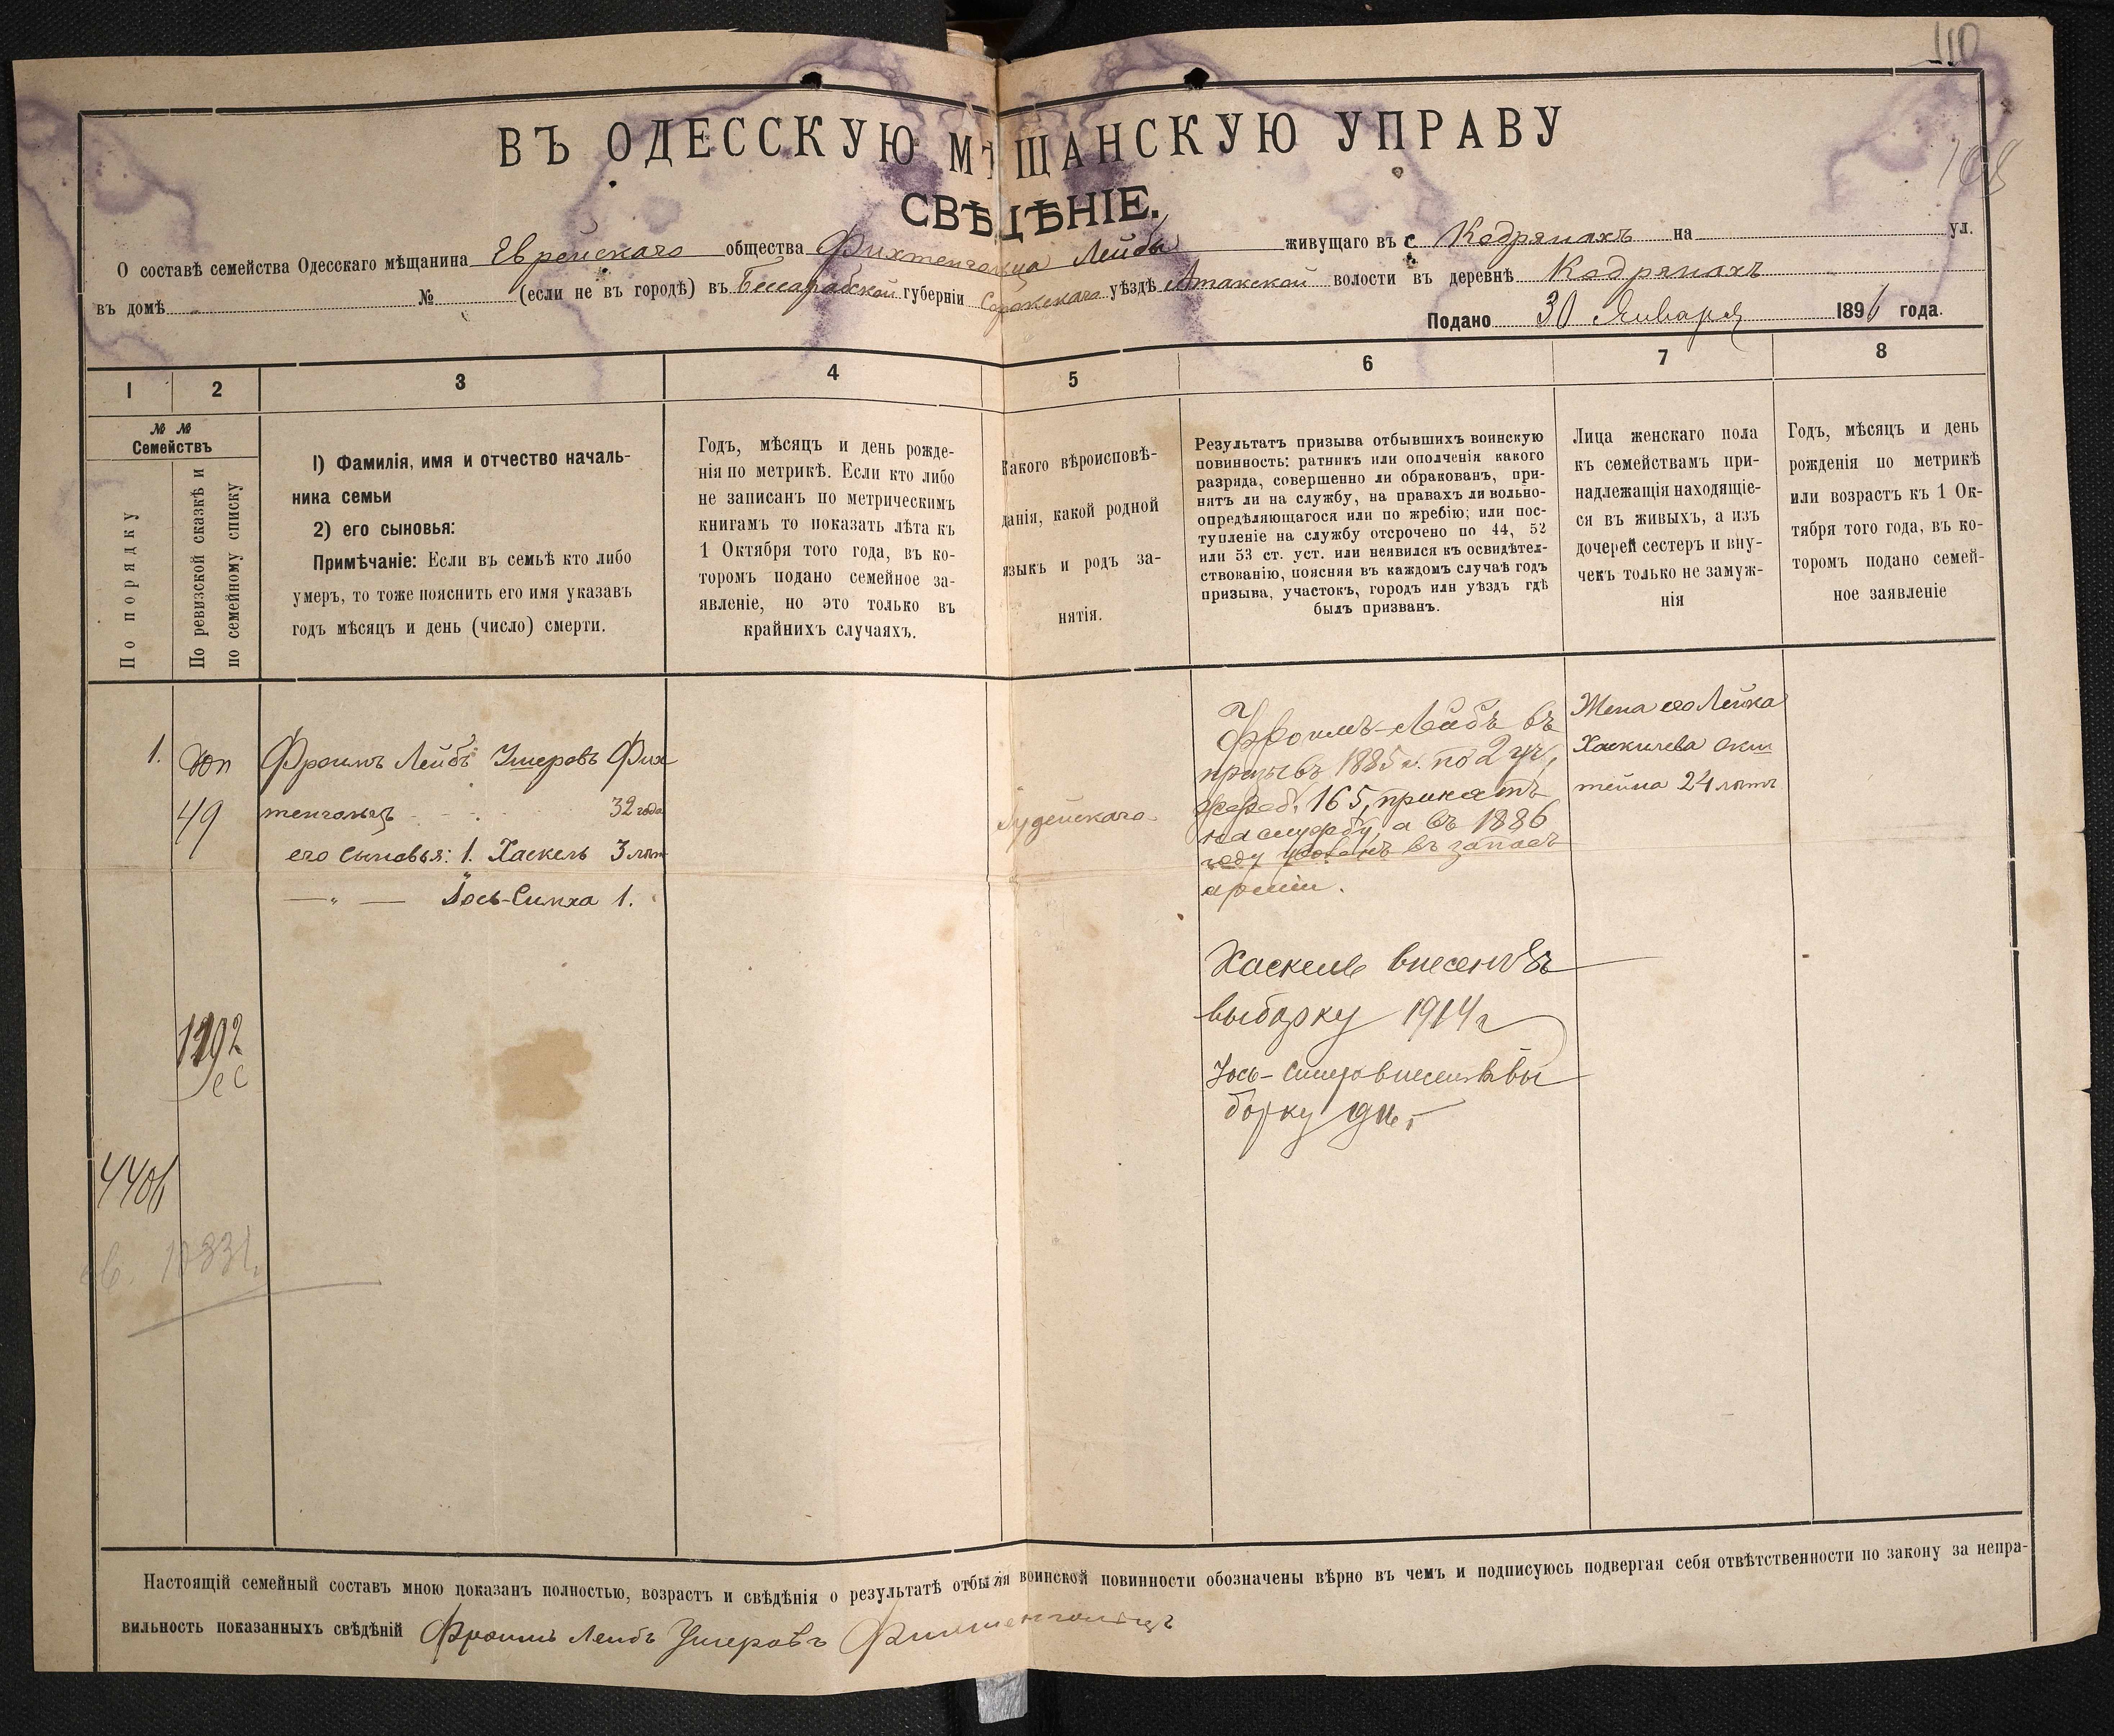 110
108
ВЪ ОДЕССКУЮ МѢЩАНСКУЮ УПРАВУ
СВѢДѢНІЕ.
О составѣ семейства Одесскаго мѣщанина Еврейскаго общества Фихтенгольца Лейбы живущаго въ с Кодрянахъ на ул.
въ домѣ № (если не въ городѣ) въ Бессарабской губерніи Сорокскаго уѣздѣ Атакской волости въ деревнѣ Кодрянахъ
Подано 30 Января 1896 года.
1 2 3 4 5 6 7 8
№ №
Семействъ
По порядку
По ревизской сказкѣ и
по семейному списку
1) Фамилія, имя и отчество началь-
ника семьи
2) его сыновья:
Примѣчаніе: Если въ семьѣ кто либо
умеръ, то тоже пояснить его имя указавъ
годъ мѣсяцъ и день (число) смерти.
Годъ, мѣсяцъ и день рожде-
нія по метрикѣ. Если кто либо
не записанъ по метрическимъ
книгамъ то показать лѣта къ
1 Октября того года, въ ко-
торомъ подано семейное за-
явленіе, но это только въ
крайнихъ случаяхъ.
Какого вѣроисповѣ-
данія, какой родной
языкъ и родъ за-
нятія.
Результатъ призыва отбывшихъ воинскую
повинность: ратникъ или ополченія какого
разряда, совершенно ли обракованъ, при-
нятъ ли на службу, на правахъ ли вольно-
опредѣляющагося или по жребію; или пос-
тупленіе на службу отсрочено по 44, 52
или 53 ст. уст. или неявился къ освидѣтел-
ствованію, поясняя въ каждомъ случаѣ годъ
призыва, участокъ, городъ или уѣздъ гдѣ
былъ призванъ.
Лица женскаго пола
къ семействамъ при-
надлежащія находящіе-
ся въ живыхъ, а изъ
дочерей сестеръ и вну-
чекъ только не замуж-
нія
Годъ, мѣсяцъ и день
рожденія по метрикѣ
или возрастъ къ 1 Ок-
тября того года, въ ко-
торомъ подано семей-
ное заявленіе
1.
49
Фроимъ Лейбъ Ушеровъ Фих
тенгольцъ 32 года
его сыновья: 1. Хаскель 3 лѣтъ
—„— Іось-Симха 1.
Іудейскаго
Фроимъ-Лейбъ въ
призывъ 1885 г. по 2 уч,
жереб. 165, принятъ
на службу, а въ 1886
году уволенъ въ запасъ
арміи.
Хаскель внесенъ въ
выборку 1914 г
Іось-Симха внесенъ въ вы
борку
Жена его Лейка
Хаскилева
24 лѣтъ
1292
4406
Настоящій семейный составъ мною показанъ полностью, возрастъ и свѣдѣнія о результатѣ отбытія воинской повинности обозначены вѣрно въ чемъ и подписуюсь подвергая себя отвѣтственности по закону за непра-
вильность показанныхъ свѣдѣній Фроимъ Лейбъ Ушеровъ Фихтенгольцъ